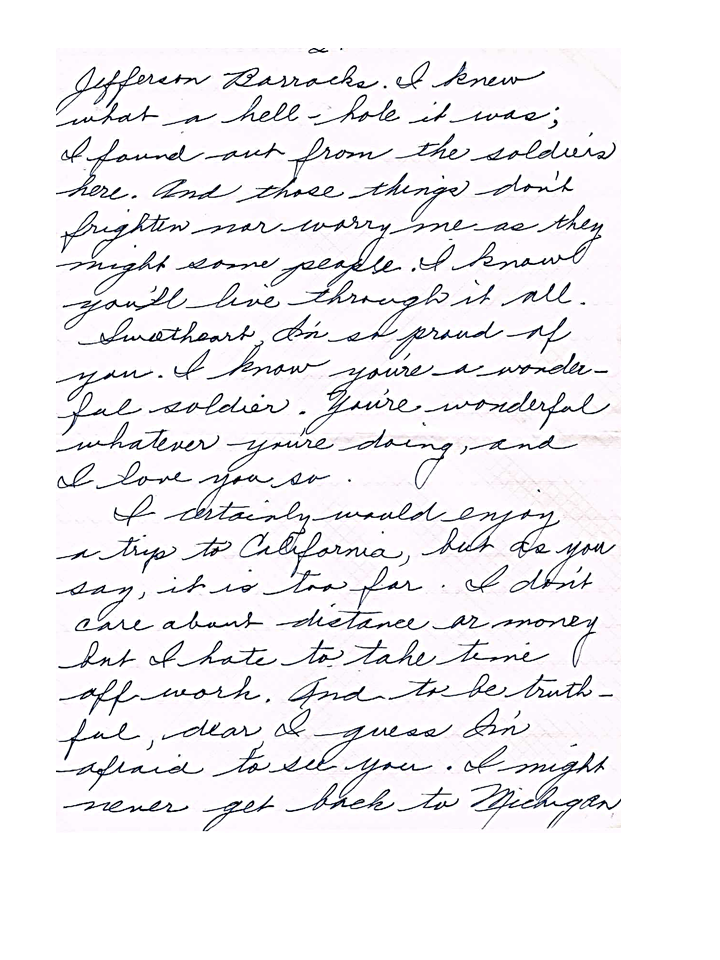 2.
Jefferson Barracks. I knew
what a hell-hole it was;
I found out from the soldiers
here. And those things don't
frighten nor worry me as they
might some people. I know
you'll live through it all.
Sweetheart, I'm so proud of
you. I know you're a wonder-
ful soldier. You're wonderful
whatever you're doing, and
I love you so.
I certainly would enjoy
a trip to California, but as you
say, it is too far. I don't
care about distance or money
but I hate to take time
off work. And to be truth-
ful, dear, I guess I'm
afraid to see you. I might
never get back to Michigan